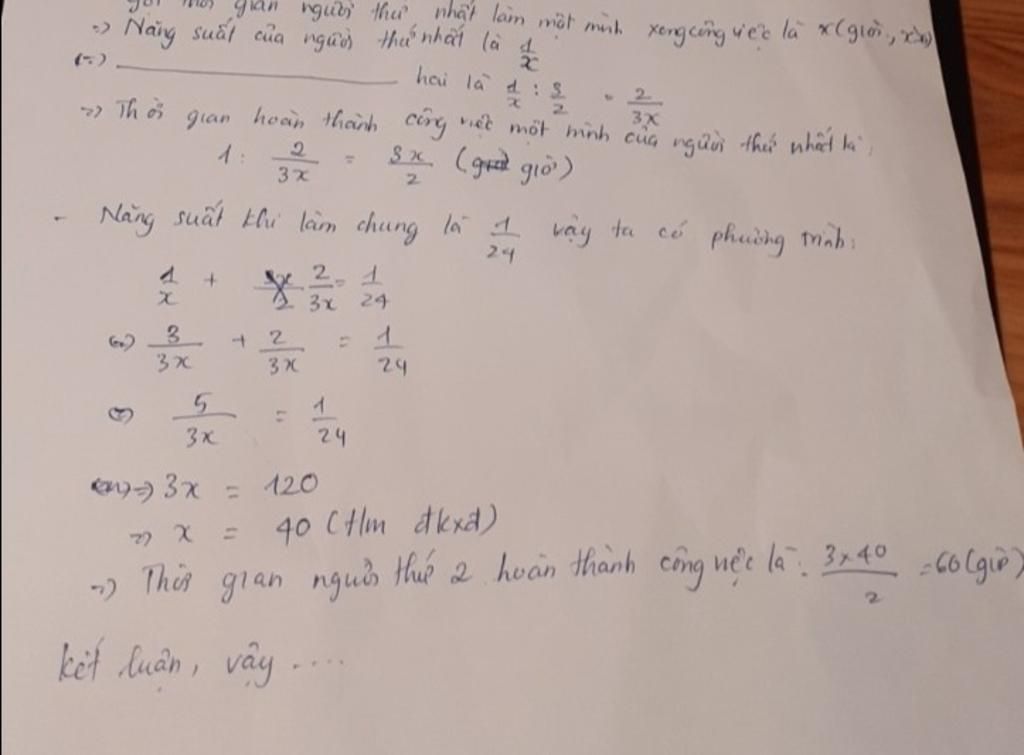 gọi thời gian người thứ nhất làm một mình xong công việc là x (giờ, x>
=> Năng suất của người thứ nhất là 1/x
(=>) ____________ hai là 1/x : 3/2 = 2/3x
=> Thời gian hoàn thành công việc một mình của người thứ nhất là:
1 : 2/3x = 3x/2 (giờ)
- Năng suất khi làm chung là 1/24 vậy ta có phương trình:
1/x + 2/3x = 1/24
(=) 3/3x + 2/3x = 1/24
(=) 5/3x = 1/24
=> 3x = 120
=> x = 40 (t/m đkxđ)
=> Thời gian người thứ 2 hoàn thành công việc là: 3x40/2 = 60 (giờ)
kết luận, vậy ....